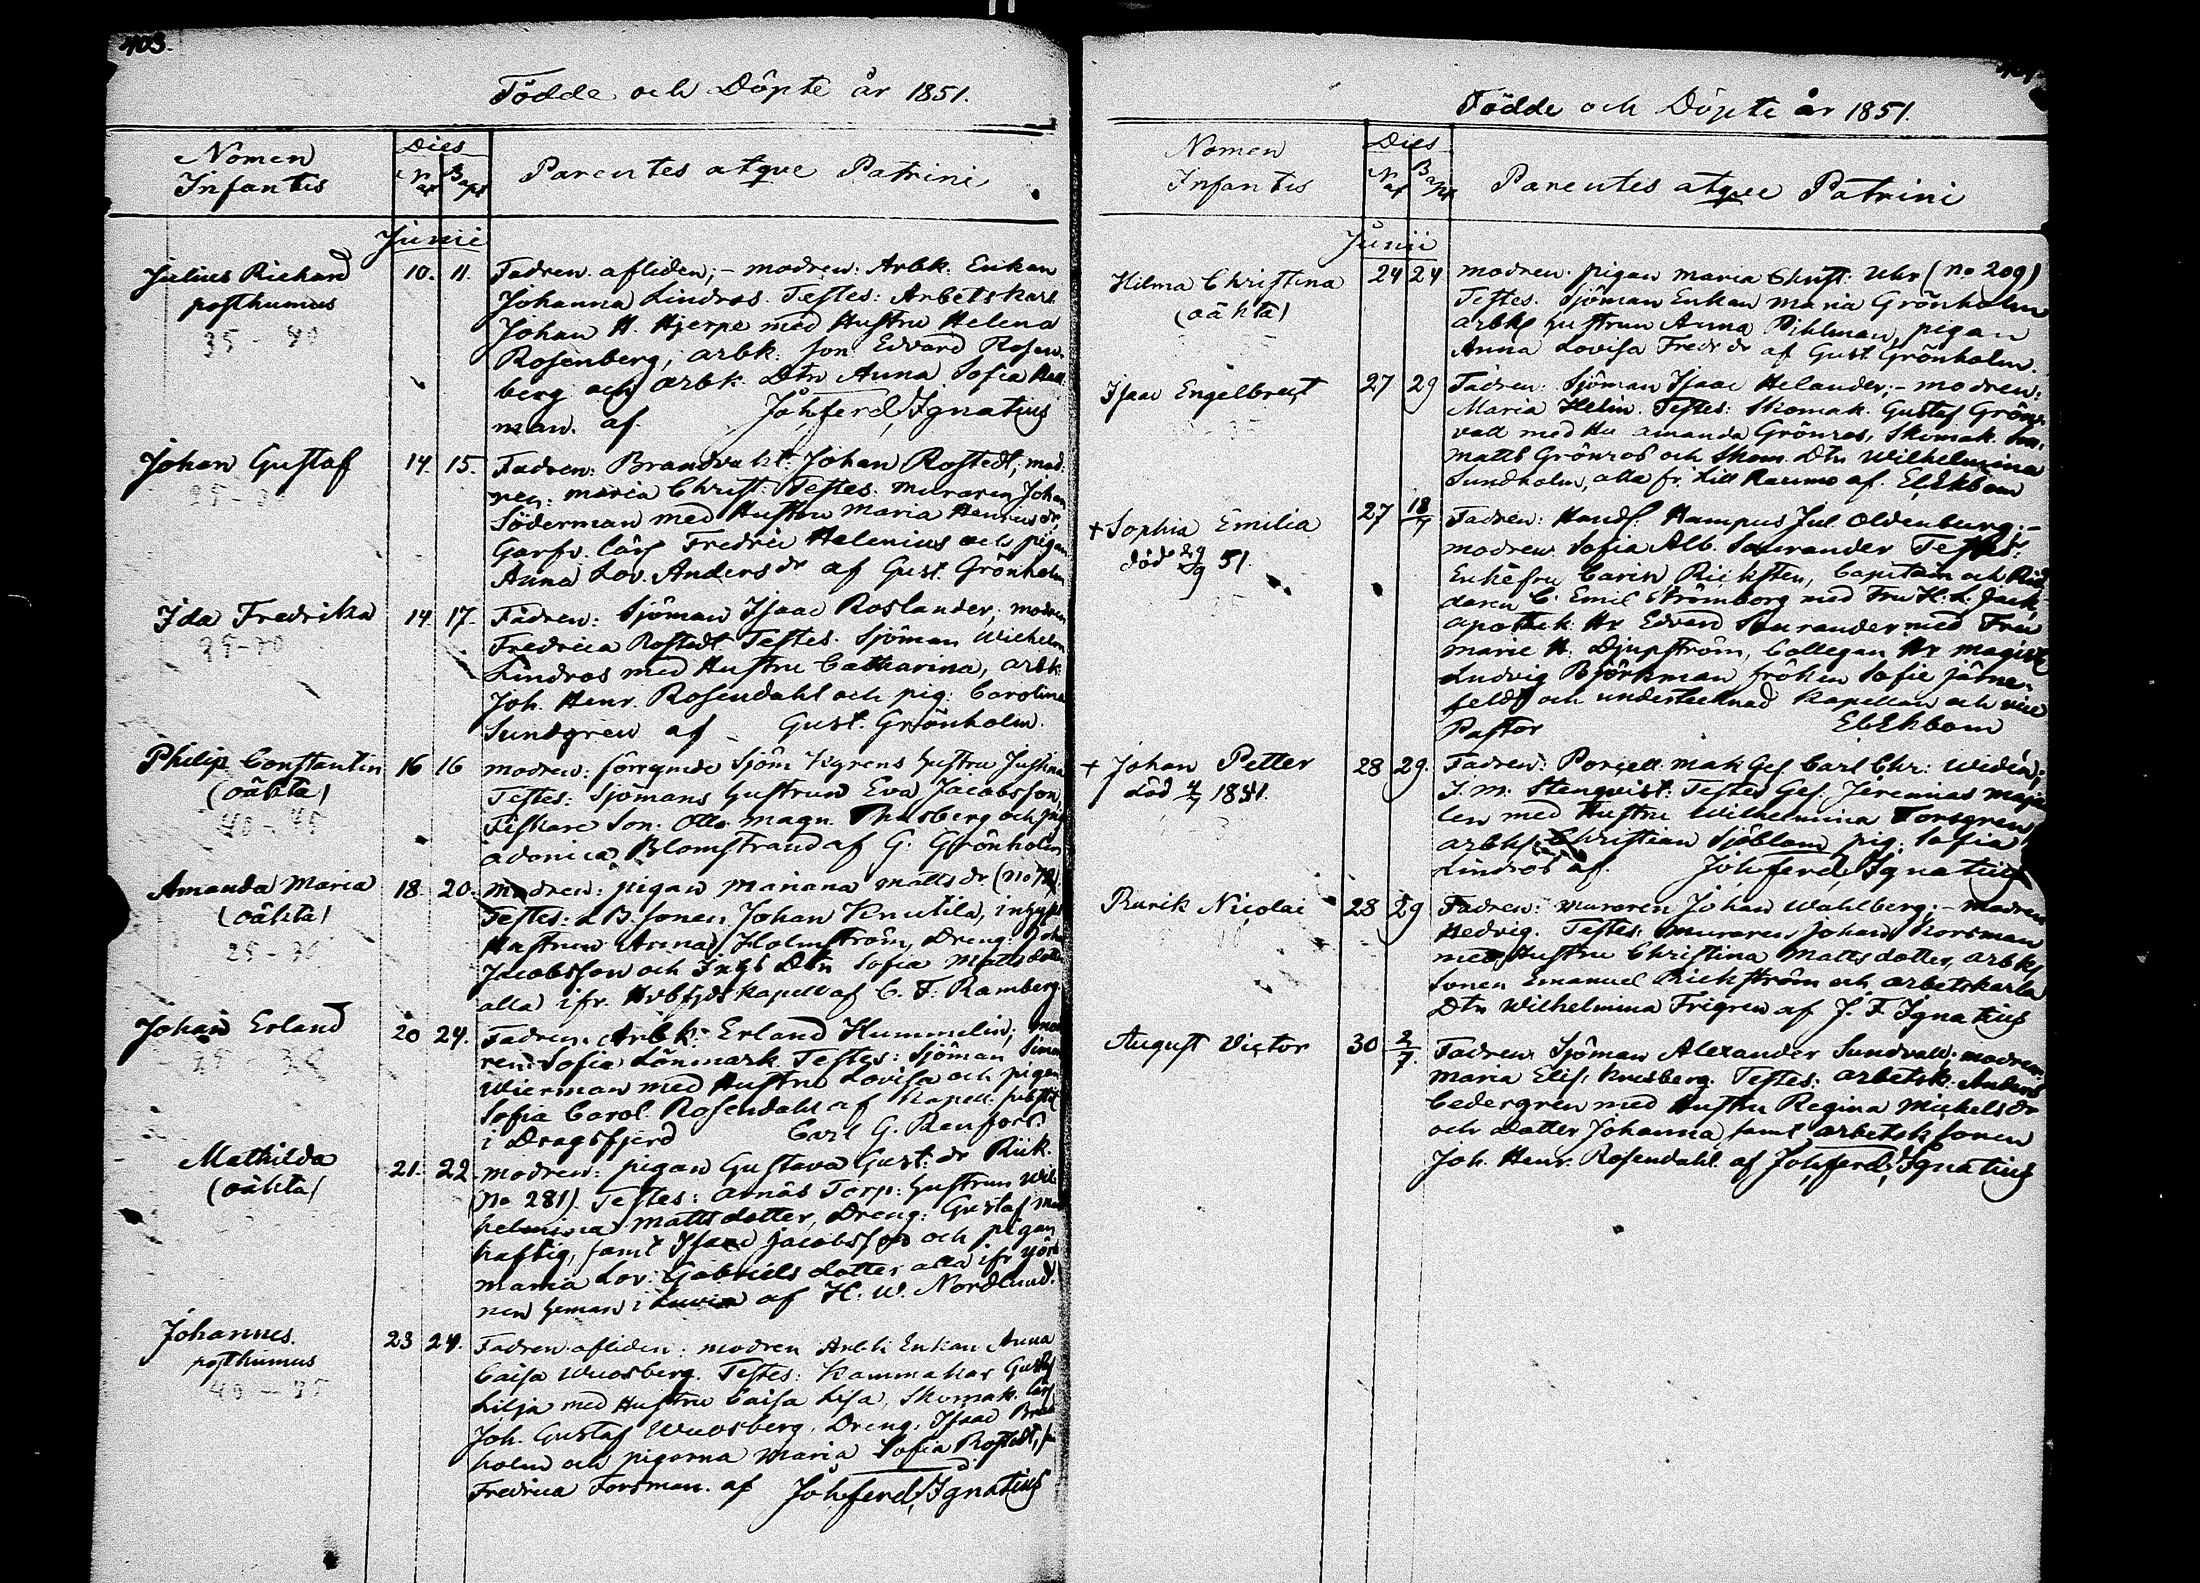 403.
Födde och Döpte år 1851.
Nomen Infantis
Dies
Nat Bapt
Parentes atqve Patrini
Junii
Julius Richard
posthumus
35 - 40
10. 11.
Fadren afliden; - modren: Arbk. Enkan
Johanna Lindros. Testes: Arbetskarl
Johan H. Hjerpe med Hustru Helena
Rosenberg, arbk. son Edvard Rosen-
berg och arbk. Dtr Anna Sofia
man. af Joh ferd Ignatius
Johan Gustaf
25 - 30
14. 15.
Fadren: Brandvakt: Johan Rostedt, mod
ren: Maria Christ: Testes: muraren Johan
Söderman med Hustru Maria Henricsdr,
Garfv. lärl Fredric Helenius och pigan
Anna Lov. Anders dr af Gust. Grönholm
Ida Fredrika
14. 17.
Fadren: Sjöman Isaac Roslander, modren
Fredrica Rostedt. Testes. Sjöman Wilhelm
Lindros med Hustru Catharina, arbk.
Joh. Henr. Rosendahl och pig: Carolina
Sundgren af Gust. Grönholm.
Philip Constantin
(oäkta)
40 - 45
16 16
modren: förrymde Sjöm hustru Justina
Testes: Sjömans hustrun Eva Jacobsson,
Fiskare Son: Otto magn. och
adonica Blomstrand af G. Grönholm
Amanda Maria
(oäkta)
25 - 30
18. 20.
modren: pigan Mariana matts dr
Testes: Sonen Johan Knutila,
Hustrun Anna Holmström, Dreng:
Jacobsson och Dtr Sofia Mattsdotter
alla ifr. kapell af C. F. Ramberg
Johan Erland
20 24.
Fadren. Arbk: Erland Hummelin; mod
ren: Sofia Lönmark. Testes: Sjöman
Wierman med Hustru Lovisa och pigan
Sofia Carol. Rosendahl af Kapell.
i Dragsfjerd Carl G. Renfors.
Mathilda
(oäkta)
21. 22
modren: pigan Gustava Gust: dr Riik.
(No 281). Testes: Arnäs Torp: hustrun Wil-
helmina Mattsdotter, Dreng: Gustaf
haftig, samt Isaac Jacobsson och pigan
maria Lov: Gabriels dotter alla ifr
nen heman i Luvia af H. W. Nordlund.
Johannes.
posthumus
23 24.
Fadren afliden: modren Arbk Enkan Anna
Caisa Wuosberg. Testes: Kammakar Gustaf
Lilja med Hustru Caisa Lisa, Skomak. lärl.
Joh. Gustaf Wuosberg, Dreng. Isaac
holm och pigorna Maria Sofia Rostedt,
Fredrica Forsman. af Joh ferd Ignatius
Födde och Döpte år 1851.
Nomen Infantis
Dies
Nat Bapt
Parentes atqve Patrini
Junii
Hilma Christina
(oäkta)
24 24
modren. pigan maria Christ. Uhr (no 209)
Testes. Sjöman Enkan Maria Grönholm
arbks hustrun Anna Pihlman, pigan
Anna Lovisa Fredr dr af Gust. Grönholm.
Isaac Engelbrect
27 29
Fadren: Sjöman Isaac Helander; - modren:
Maria Helin. Testes: Skomak. Gustaf Grön-
vall med Hu Amanda Grönros, Skomak.
Matts Grönros och Skom. Dtr Wilhelmina
Sundholm, alla fr. Raumo af Ekbom
+ Sophia Emilia
död 29/9 51.
27 18/7
Fadren: Handl. Hampus Jul. Oldenburg; -
modren Sofia Alb. Saurander Testes:
Enkefru Carin Ricksten, Capitain och Rid
daren C. Emil Strömborg med Fru H. L. Jack,
Apothek. Hr Edvard Saurander med Fru
Marie H. Djupström, Collegan Hr Magister
Ludvig Björkman fröken Sofie Järne-
feldt och undertecknad Kapellan och vice
Pastor Ekbom
+ Johan Petter
död 1851.
28 29.
Fadren: mak Ges Carl Chr: Widén;
J. M. Stenqvist: Testes Ges. Jeremias
len med Hustru Wilhelmina Forsgren,
arbks Christian Sjöblom pig: Sofia
Lindros af. Joh ferd Ignatius
Rurik Nicolai
28 29
Fadren: Muraren Johan Wahlberg; - modren
Hedvig. Testes: muraren Johan Norsman
med Hustru Christina Mattsdotter, arbks
Sonen Emanuel Rickström och arbetskarls
Dtr Wilhelmina Frigren af J. F. Ignatius
August Victor
30 2/7.
Fadren: Sjöman Alexander Sundvall; modren
Maria Elis. Testes: arbetsk. Anders
Cedergren med Hustru Regina Michels dr
och Dotter Johanna, samt arbetsk sonen
Joh. Henr. Rosendahl. af Joh ferd Ignatius